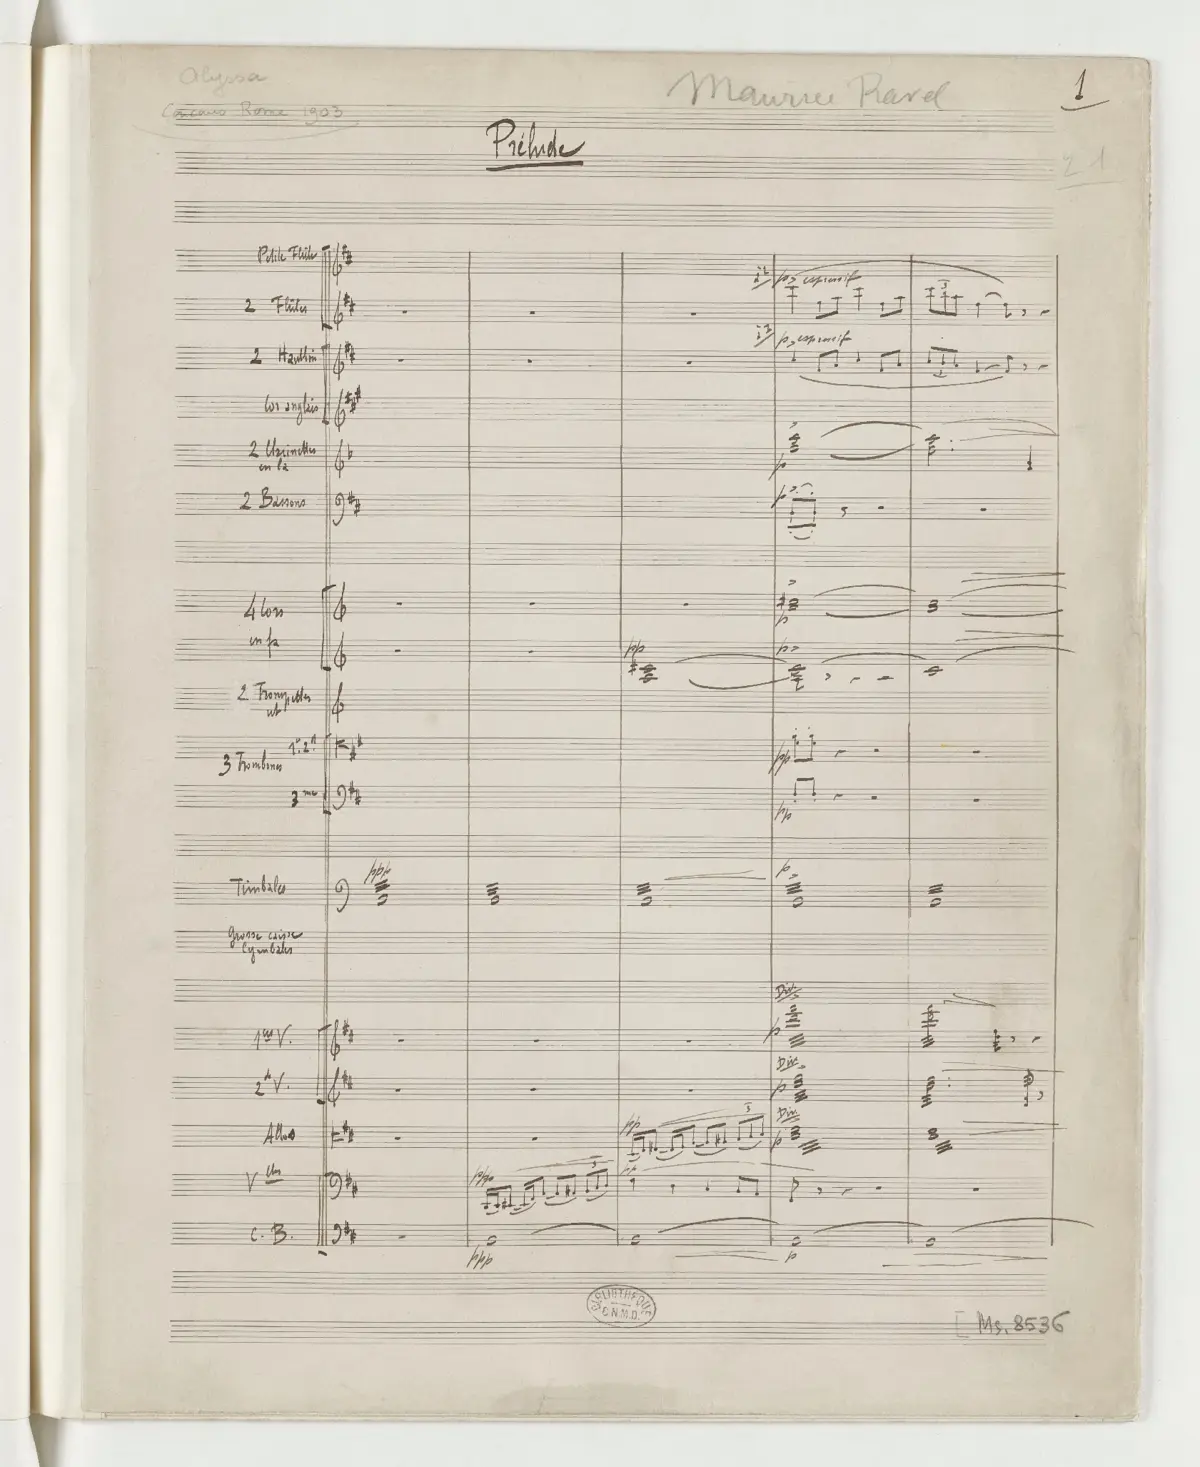 Alyssa
Maurice Ravel
1
Concours Rome 1903
Prélude
Petite Flûte
i° p espressif
2 Flûtes
i° p espressif
2 Hautbois
Cor anglais
2 Clarinettes
en la
p
2 Bassons
p
4 Cors
p
en fa
pp
p
2 Trompettes
ut
1er. 2d
3 Trombones
pp
3me
pp
ppp
p
Timbales
Grosse caisse
Cymbales
Div.
1ers V.
p
Div.
2d V.
p
Div.
pp
3
Altos
p
ppp
3
pp
Vlles
C. B.
ppp
p
BIBLIOTHÈQUE
C.N.M.D.
[Ms. 8536